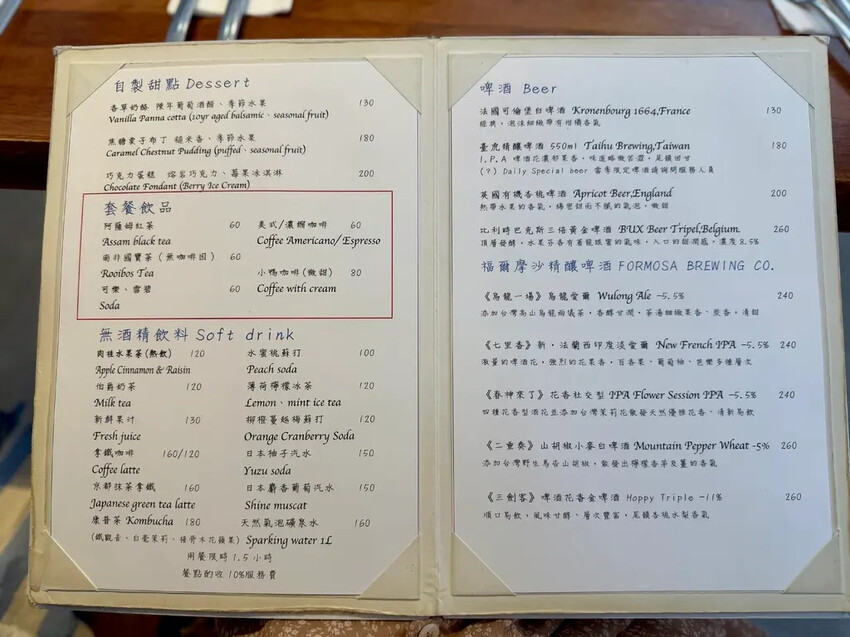 自製甜點 Dessert
香草奶酪 陳年葡萄酒醋、季節水果 130
Vanilla Panna cotta (10yr aged balsamic、seasonal fruit)
焦糖栗子布丁 糙米香、季節水果 180
Caramel Chestnut Pudding (puffed、seasonal fruit)
巧克力蛋糕 熔岩巧克力、莓果冰淇淋 200
Chocolate Fondant (Berry Ice Cream)
套餐飲品
阿薩姆紅茶 60 美式/濃縮咖啡 60
Assam black tea Coffee Americano/ Espresso
南非國寶茶 (無咖啡因) 60
Rooibos Tea 小鴨咖啡(微甜) 80
可樂、雪碧 60 Coffee with cream
Soda
無酒精飲料 Soft drink
肉桂水果茶(熱飲) 120 水蜜桃蘇打 100
Apple Cinnamon & Raisin Peach soda
伯爵奶茶 120 薄荷檸檬冰茶 120
Milk tea Lemon、mint ice tea
新鮮果汁 130 柳橙蔓越梅蘇打 120
Fresh juice Orange Cranberry Soda
拿鐵咖啡 160/120 日本柚子汽水 150
Coffee latte Yuzu soda
京都抹茶拿鐵 160 日本麝香葡萄汽水 150
Japanese green tea latte Shine muscat
康普茶 Kombucha 180 天然氣泡礦泉水 160
(鐵觀音、白毫茉莉、種骨木花蘋果) Sparking water 1L
用餐限時 1.5 小時
餐點酌收 10%服務費
啤酒 Beer
法國可倫堡白啤酒 Kronenbourg 1664,France 130
經典，泡沫細緻帶有柑橘香氣
臺虎精釀啤酒 550ml Taihu Brewing,Taiwan 180
I.P.A 啤酒花濃郁果香，味道略微苦澀，尾韻回甘
(?) Daily Special beer 當季限定啤酒請詢問服務人員
英國有機杏桃啤酒 Apricot Beer,England 200
熱帶水果的香氣，綿密甜而不膩的氣泡，微甜
比利時巴克斯三倍黃金啤酒 BUX Beer Tripel,Belgium. 260
頂層發酵，水果芬香有著龍眼蜜的氣味，入口的甜潤感，濃度 8.5%
福爾摩沙精釀啤酒 FORMOSA BREWING CO.
《烏龍一場》烏龍愛爾 Wulong Ale -5.5% 240
添加台灣高山烏龍兩儀茶，香醇甘潤，茶湯細緻果香、炭香，清甜
《七里香》新・法蘭西印度淡愛爾 New French IPA -5.5% 240
激量的啤酒花，強烈的花果香，百香果、葡萄柚、芭樂多種層次
《春神來了》花香社交型 IPA Flower Session IPA -5.5% 240
四種花香型酒花並添加台灣茉莉花散發天然優雅花香，清新易飲
《二重奏》山胡椒小麥白啤酒 Mountain Pepper Wheat -5% 260
添加台灣野生馬告山胡椒，散發出檸檬香茅及薑的香氣
《三劍客》啤酒花香金啤酒 Hoppy Triple -11% 260
順口易飲，風味甘醇、層次豐富，尾韻杏桃水梨香氣